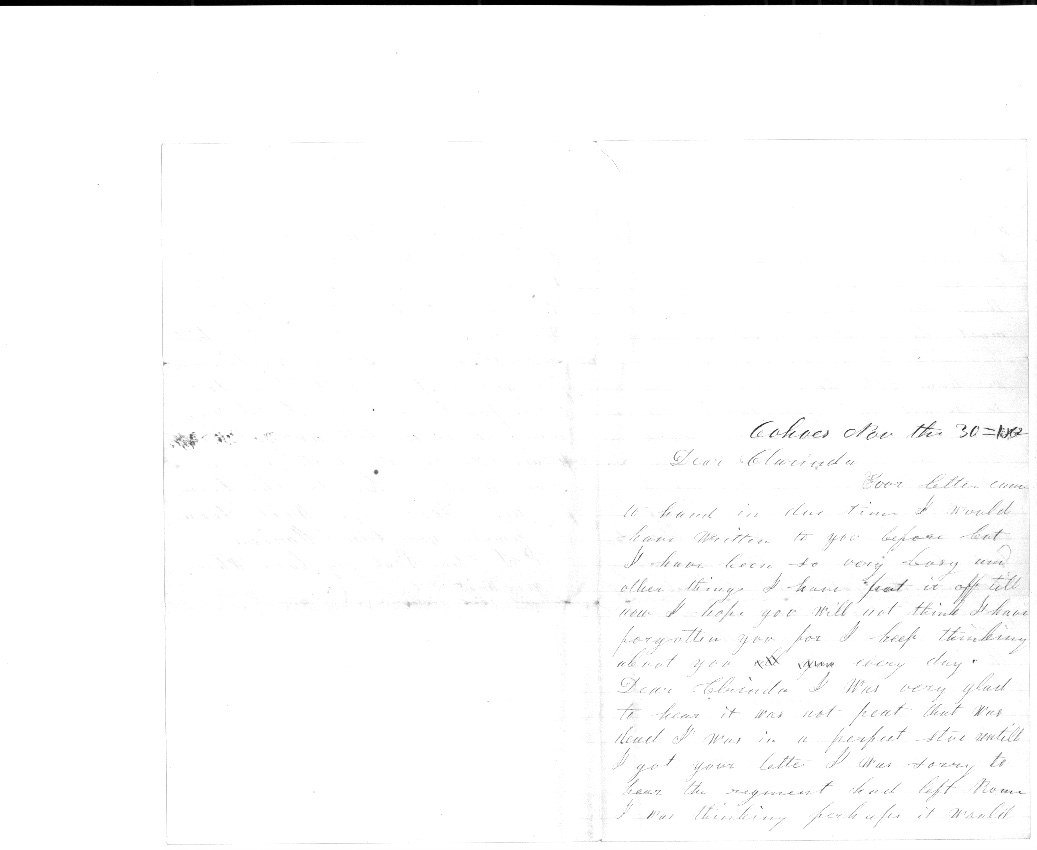 Cohoes Nov the 30 =
Dear Clarinda
Your letter came
to hand in due time I would
have Written to you before but
I have been so very busy and
other things I have put it off till
now I hope you Will not think I have
forgotten you for I keep thinking
about you every day.
Dear Clrinda I Was very glad
to hear it was not that was
dead I was in a perfect untill
I got your letter I was sorry to
hear the regiment had left Rome
I was thinking perhaps it would